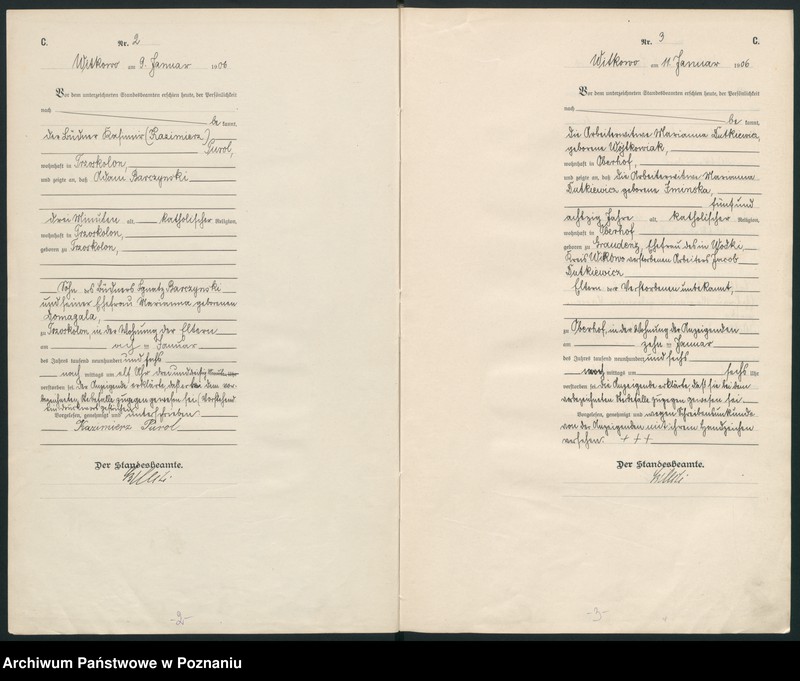 C.
Nr. 2
Witkowo am 9. Januar 1906
Vor dem unterzeichneten Standesbeamten erschien heute, der Persönlichkeit
nach
be kannt,
der Büdner Kasimir (Kazimierz)
Purol,
wohnhaft in Trzoskolon,
und zeigte an, daß Adam Barczynski
drei Minuten alt, katholischer Religion,
wohnhaft in Trzoskolon,
geboren zu Trzoskolon,
Sohn des Büdners Ignatz Barczynski
und seiner Ehefrau Marianna geborenen
Domagala,
zu Trzoskolon, in der Wohnung der Eltern
am acht Januar
des Jahres tausend neunhundert und sechs
nach mittags um elf Uhr drei und Minuten
verstorben sei. Der Anzeigende erklärte, daß er bei dem vor
bezeichneten Sterbefalle zugegen gewesen sei. Vorstehend
Vorgelesen, genehmigt und unterschrieben
Kazimierz Purol
Der Standesbeamte.
-2-
Nr. 3
C.
Witkowo am 11. Januar 1906
Vor dem unterzeichneten Standesbeamten erschien heute, der Persönlichkeit
nach
be kannt,
die Arbeiterwitwe Marianna Dutkiewicz,
geborene Wojtkowiak,
wohnhaft in Oberhof,
und zeigte an, daß die Arbeiterwitwe Marianna
Dutkiewicz geborene
fünf und
achtzig Jahre alt, katholischer Religion,
wohnhaft in Oberhof
geboren zu Graudenz, Ehefrau des in Wodki
Kreis Witkowo verstorbenen Arbeiters Jacob
Dutkiewicz
Eltern der Verstorbenen unbekannt,
zu Oberhof, in der Wohnung der Anzeigenden
am zehn Januar
des Jahres tausend neunhundert und sechs
nach mittags um sechs Uhr
verstorben sei. Die Anzeigende erklärte, daß sie bei dem
vorbezeichneten Sterbefalle zugegen gewesen sei
Vorgelesen, genehmigt und wegen Schreibensunkunde
von der Anzeigenden mit ihrem Handzeichen
versehen. +++
Der Standesbeamte.
-3-
Archiwum Państwowe w Poznaniu